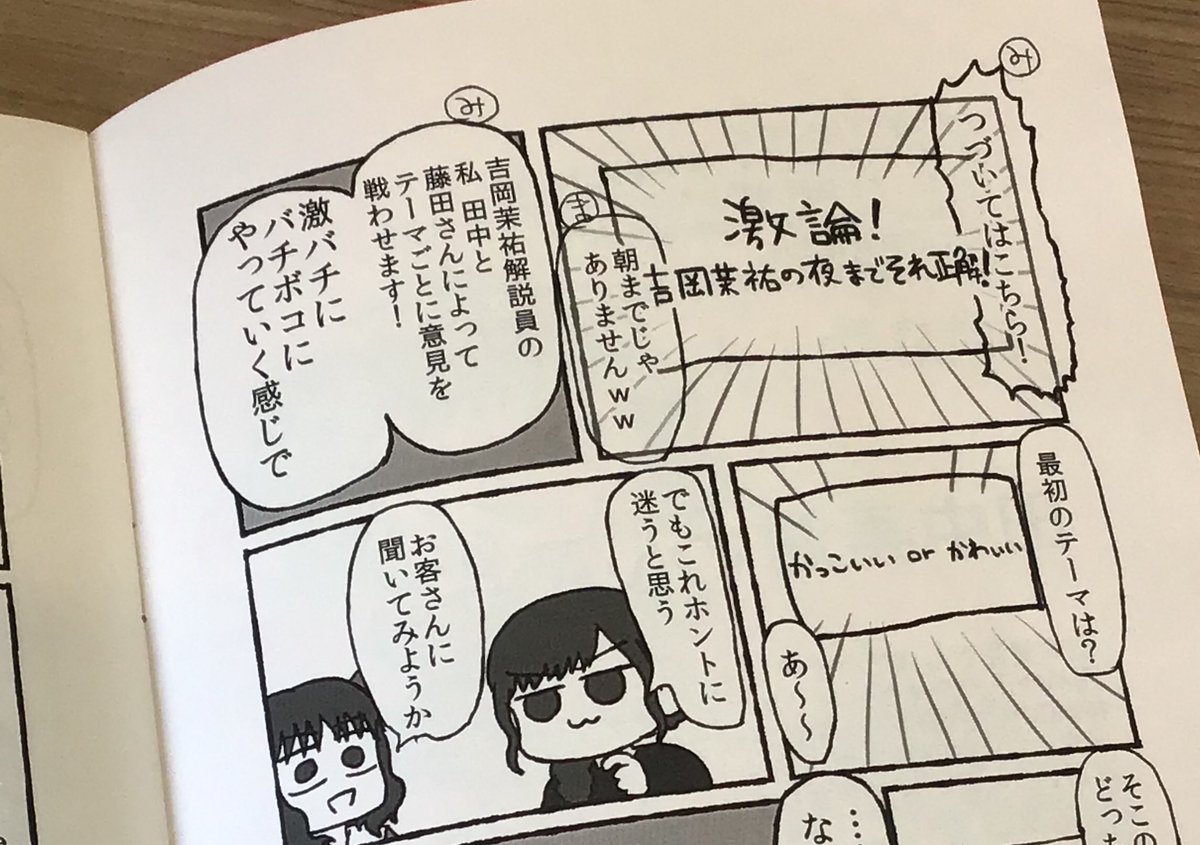 み
つづいてはこちら！
激論！
吉岡茉祐の夜までそれ正解！
ま
朝までじゃ
ありませんｗｗ
み
吉岡茉祐解説員の
私 田中と
藤田さんによって
テーマごとに意見を
戦わせます！
激バチに
バチボコに
やっていく感じで
最初のテーマは？
かっこいい or かわいい
あ〜〜
でもこれホントに
迷うと思う
お客さんに
聞いてみようか
そこの
どっち
…
な